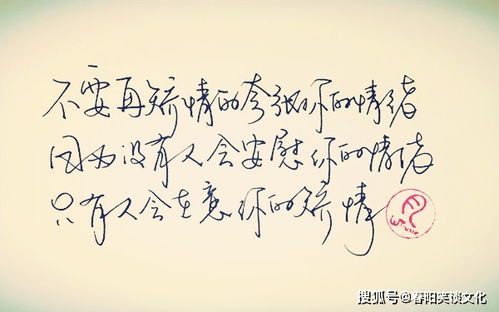 不要再矫情的夸张你的情绪
因为没有人会安慰你的情绪
只有人会在意你的矫情
搜狐号@春阳笑谈文化